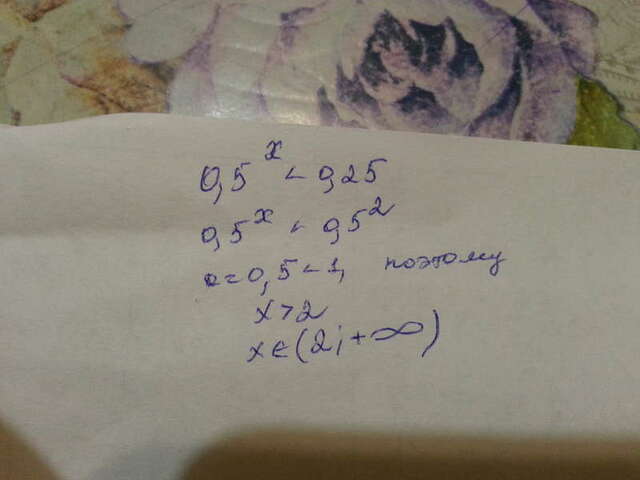 0,5^x < 0,25
0,5^x < 0,5^2
a=0,5<1, поэтому
x>2
x∈(2;+∞)